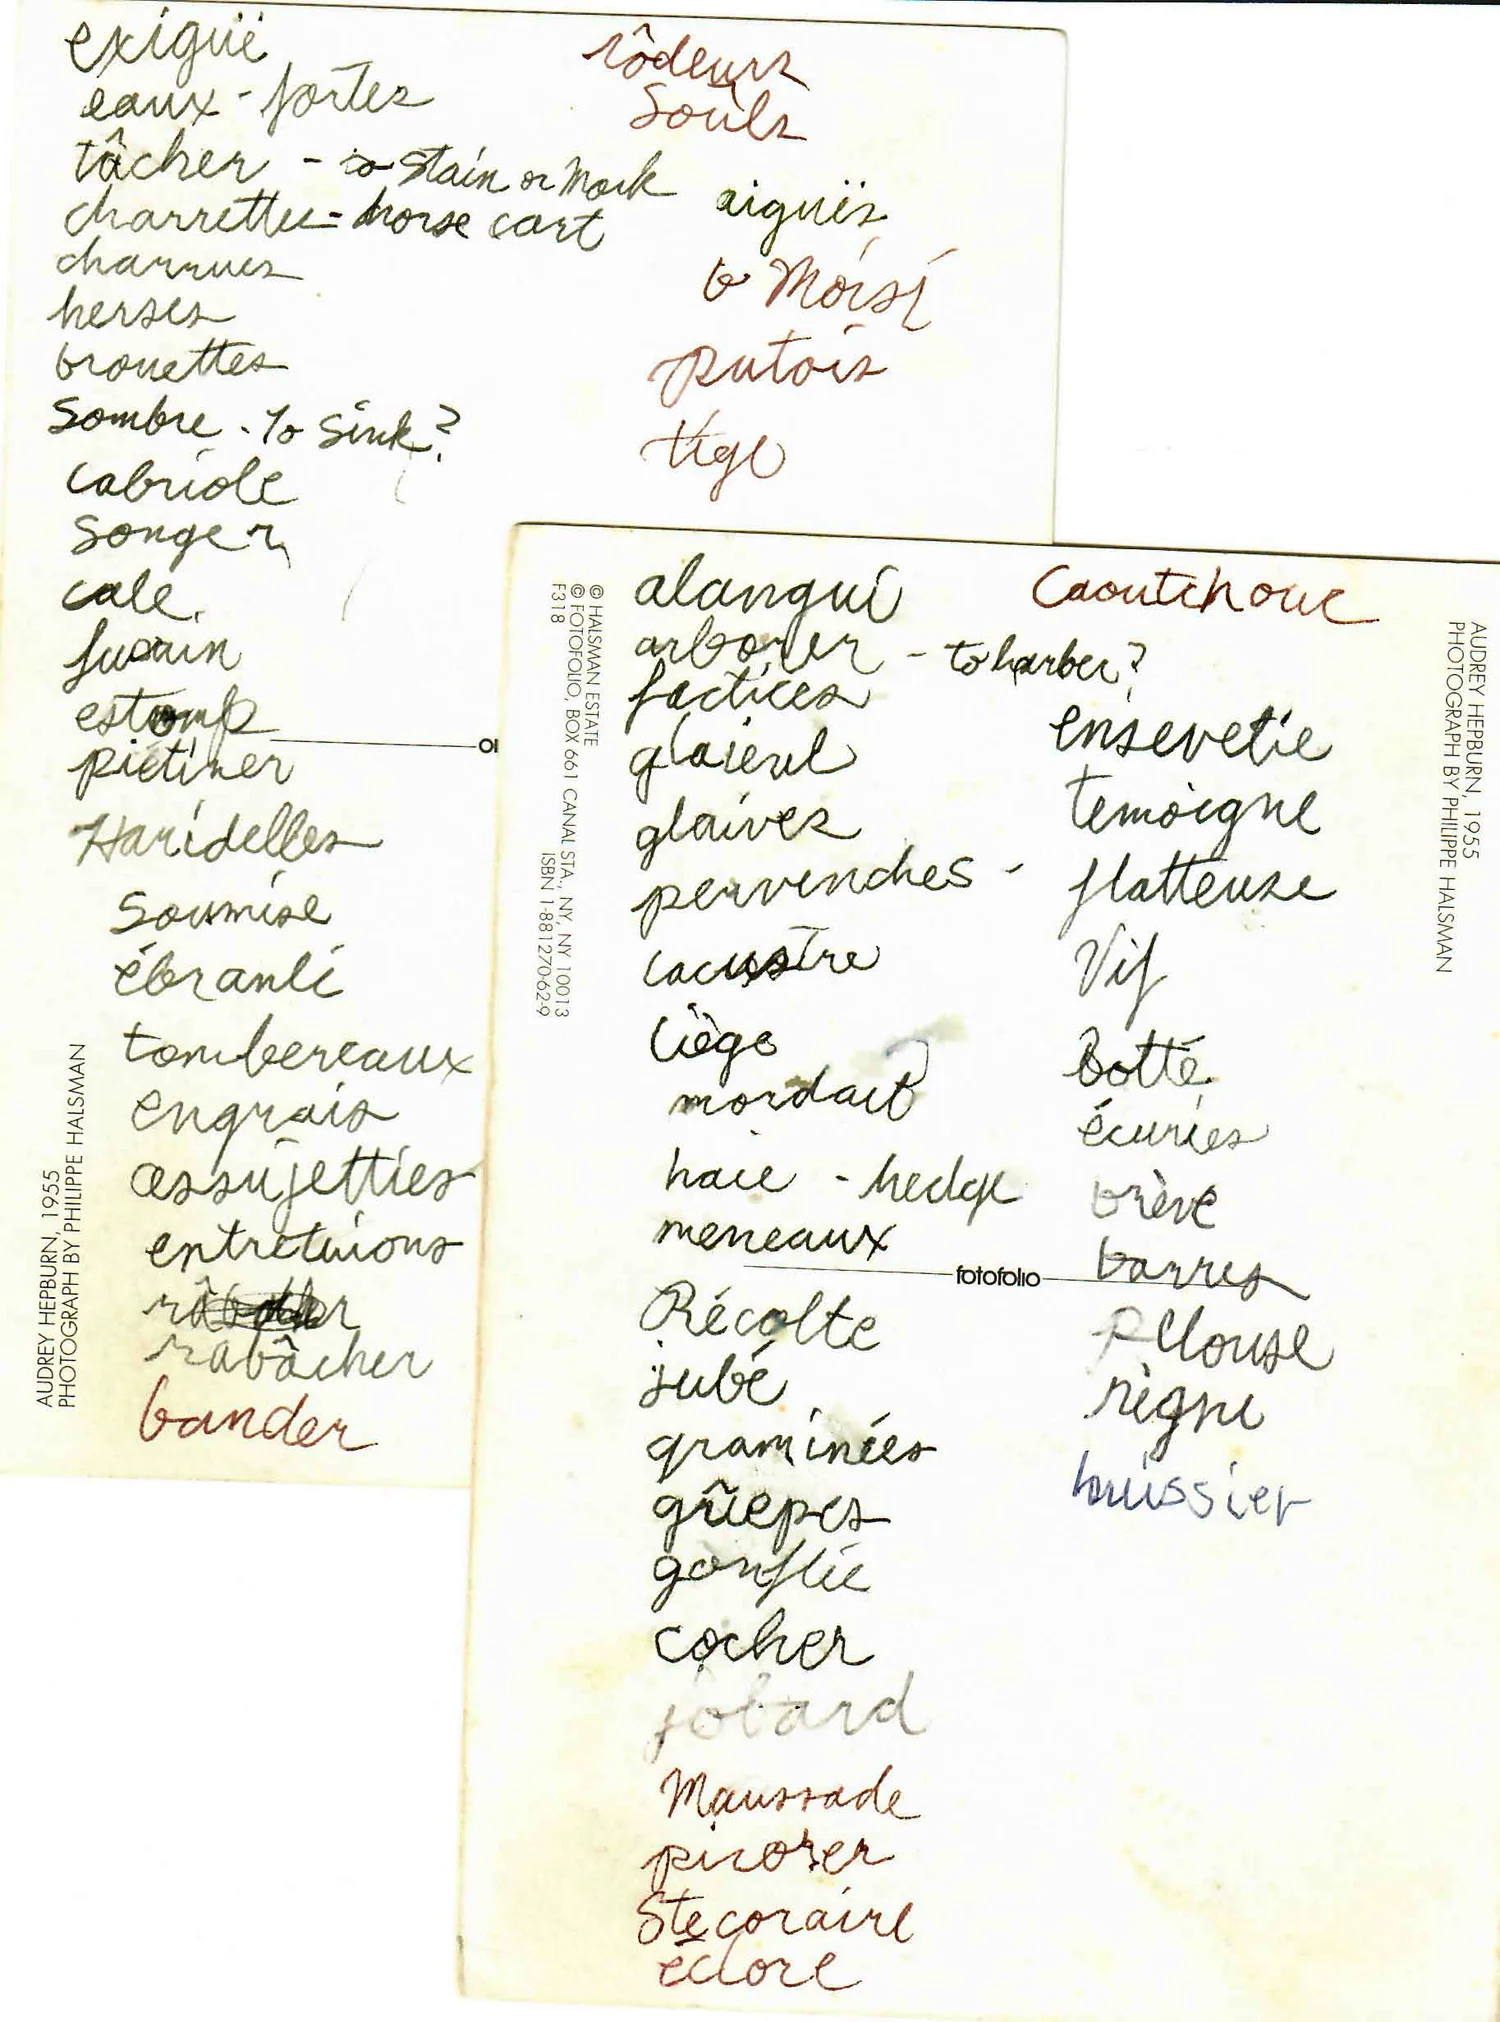 exiguë
eaux-fortes
tâcher - to stain or mark
charrettes = horse cart
charrues
herses
brouettes
sombre - to sink?
cabriole
songer
cale
fusain
estomp
piétiner
Haridelles
soumise
ébranlé
tombereaux
engrais
assujetties
entretuions
rabâcher
bander
rôdeurs
Soûls
aiguës
Moisi
putois
tige
AUDREY HEPBURN, 1955
PHOTOGRAPH BY PHILIPPE HALSMAN
© HALSMAN ESTATE
© FOTOFOLIO, BOX 661 CANAL STA., NY, NY 10013
F318 ISBN 1-881270-62-9
alangui
arborer - to harber?
factices
glaïeul
glaives
pervenches -
lacustre
liège
mordait
haie - hedge
meneaux
fotofolio
Récolte
jubé
graminées
gûepes
gonflée
cocher
jobard
Maussade
picorer
Stecoraire
éclore
Caoutchouc
ensevelie
temoigne
flatteuse
Vif
Botté
écuries
brève
barres
Pelouse
règne
huissier
AUDREY HEPBURN, 1955
PHOTOGRAPH BY PHILIPPE HALSMAN